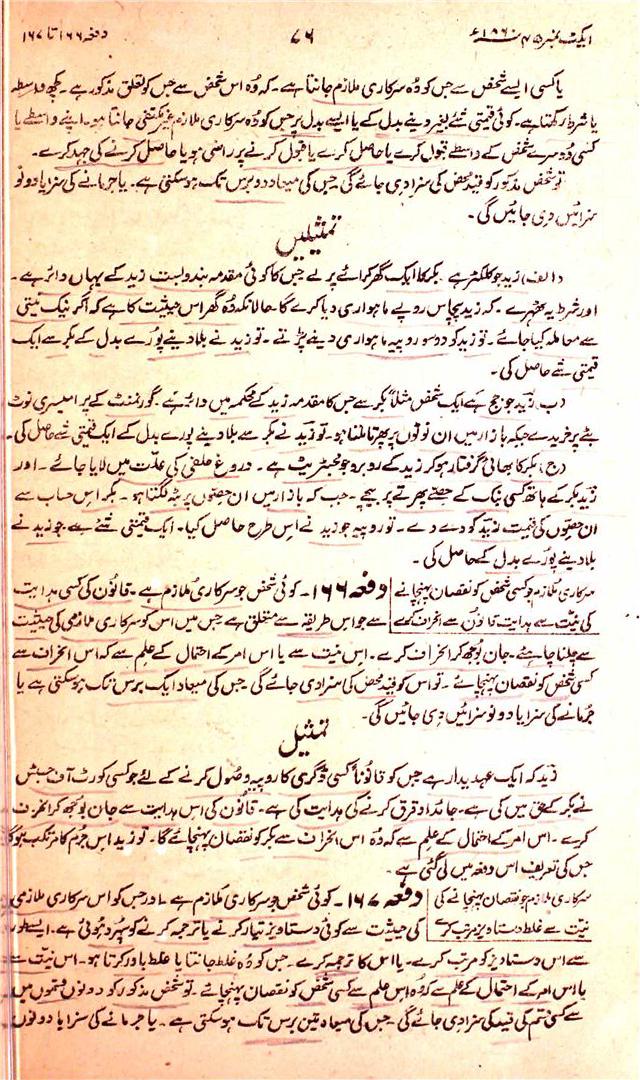 ایکٹ نمبر ۴۵ ۱۸۶۰ء ۷۶ دفعہ ۱۶۶ تا ۱۶۷
یا کسی ایسے شخص سے جس کو وہ سرکاری ملازم جانتا ہے۔ کہ وہ اس شخص سے جس کو تعلق مذکور ہے۔ کچھ واسطہ
یا شرط رکھتا ہے۔ کوئی قیمتی شئے بغیر دینے بدل کے یا ایسے بدل پر جس کو وہ سرکاری ملازم غیر مکتفی جانتا ہو۔ اپنے واسطے یا
کسی دوسرے شخص کے واسطے قبول کرے یا حاصل کرے یا قبول کرنے پر راضی ہو یا حاصل کرنے کی جہد کرے۔
تو شخص مذکور کو قید محض کی سزا دی جائے گی جس کی میعاد دو برس تک ہو سکتی ہے۔ یا جرمانے کی سزا یا دونو
سزائیں دی جائیں گی۔
تمثیلیں
(الف) زید جو کلکٹر ہے۔ بکر کا ایک گھر کرائے پر لے جس کا کوئی مقدمہ بندوبست زید کے یہاں دائر ہے۔
اور شرط یہ ٹھہرے۔ کہ زید پچاس روپے ماہواری دیا کرے گا۔ حالانکہ وہ گھر اس حیثیت کا ہے کہ اگر نیک نیتی
سے معاملہ کیا جائے۔ تو زید کو دو سو روپیہ ماہواری دینے پڑتے۔ تو زید نے بلا دینے پورے بدل کے بکر سے ایک
قیمتی شئے حاصل کی۔
(ب) زید جو جج ہے ایک شخص مثلاً بکر سے جس کا مقدمہ زید کے محکمہ میں دائر ہے۔ گورنمنٹ کے پرامیسری نوٹ
بٹے پر خریدے جبکہ بازار میں ان نوٹوں پر بھرتا ملتا ہو۔ تو زید نے بکر سے بلا دینے پورے بدل کے ایک قیمتی شئے حاصل کی۔
(ج) بکر کا بھائی گرفتار ہو کر زید کے روبرو جو مجسٹریٹ ہے۔ دروغ حلفی کی علت میں لایا جائے۔ اور
زید بکر کے ہاتھ کسی بنک کے حصے پھرتے پر بیچے۔ جب کہ بازار میں ان حصوں پر بٹہ لگتا ہو۔ بکر اس حساب سے
ان حصوں کی قیمت زید کو دے دے۔ تو روپیہ جو زید نے اس طرح حاصل کیا۔ ایک قیمتی شئے ہے جو زید نے
بلا دینے پورے بدل کے حاصل کی۔
سرکاری ملازم جو کسی شخص کو نقصان پہنچانے
کی نیت سے ہدایت قانون سے انحراف کرے
دفعہ ۱۶۶۔ کوئی شخص جو سرکاری ملازم ہے۔ قانون کی کسی ہدایت
سے جو اس طریقہ سے متعلق ہے جس میں اس کو سرکاری ملازمی کی حیثیت
سے چلنا چاہئے۔ جان بوجھ کر انحراف کرے۔ اس نیت سے یا اس امر کے احتمال کے علم سے کہ اس انحراف سے
کسی شخص کو نقصان پہنچائے۔ تو اس کو قید محض کی سزا دی جائے گی جس کی میعاد ایک برس تک ہو سکتی ہے یا
جرمانے کی سزا یا دونو سزائیں دی جائیں گی۔
تمثیل
زید کہ ایک عہدیدار ہے جس کو قانوناً کسی ڈگری کا روپیہ وصول کرنے کے لئے جو کسی کورٹ آف جسٹس
نے بکر کے حق میں کی ہے۔ جائداد قرق کرنے کی ہدایت کی ہے۔ قانون کی اس ہدایت سے جان بوجھ کر انحراف
کرے۔ اس امر کے احتمال کے علم سے کہ وہ اس انحراف سے بکر کو نقصان پہنچائے گا۔ تو زید اس جرم کا مرتکب ہوگا
جس کی تعریف اس دفعہ میں کی گئی ہے۔
سرکاری ملازم جو نقصان پہنچانے کی
نیت سے غلط دستاویز مرتب کرے
دفعہ ۱۶۷۔ کوئی شخص جو سرکاری ملازم ہے۔ اور جس کو اس سرکاری ملازمی
کی حیثیت سے کوئی دستاویز تیار کرنے یا ترجمہ کرنے کو سپرد ہوئی ہے۔ ایسے طور
سے اس دستاویز کو مرتب کرے۔ یا اس کا ترجمہ کرے۔ جس کو وہ غلط جانتا یا غلط باور کرتا ہو۔ اس نیت سے
یا اس امر کے احتمال کے علم سے کہ وہ اس علم سے کسی شخص کو نقصان پہنچائے۔ تو شخص مذکور کو دونوں قسموں میں
سے کسی قسم کی قید کی سزا دی جائے گی جس کی میعاد تین برس تک ہو سکتی ہے۔ یا جرمانے کی سزا یا دونوں